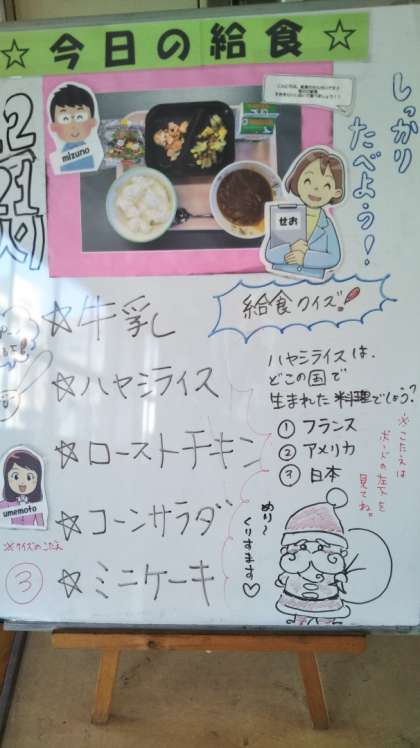 ☆今日の給食☆
12
21
しっかり
たべよう！
mizuno
せお
☆牛乳
☆ハヤシライス
☆ローストチキン
☆コーンサラダ
☆ミニケーキ
給食クイズ！
ハヤシライスは、
どこの国で
生まれた料理でしょう？
① フランス
② アメリカ
③ 日本
※こたえは
ボードの左下を
見てね。
umemoto
※クイズのこたえ
③
めり〜
くりすます♡